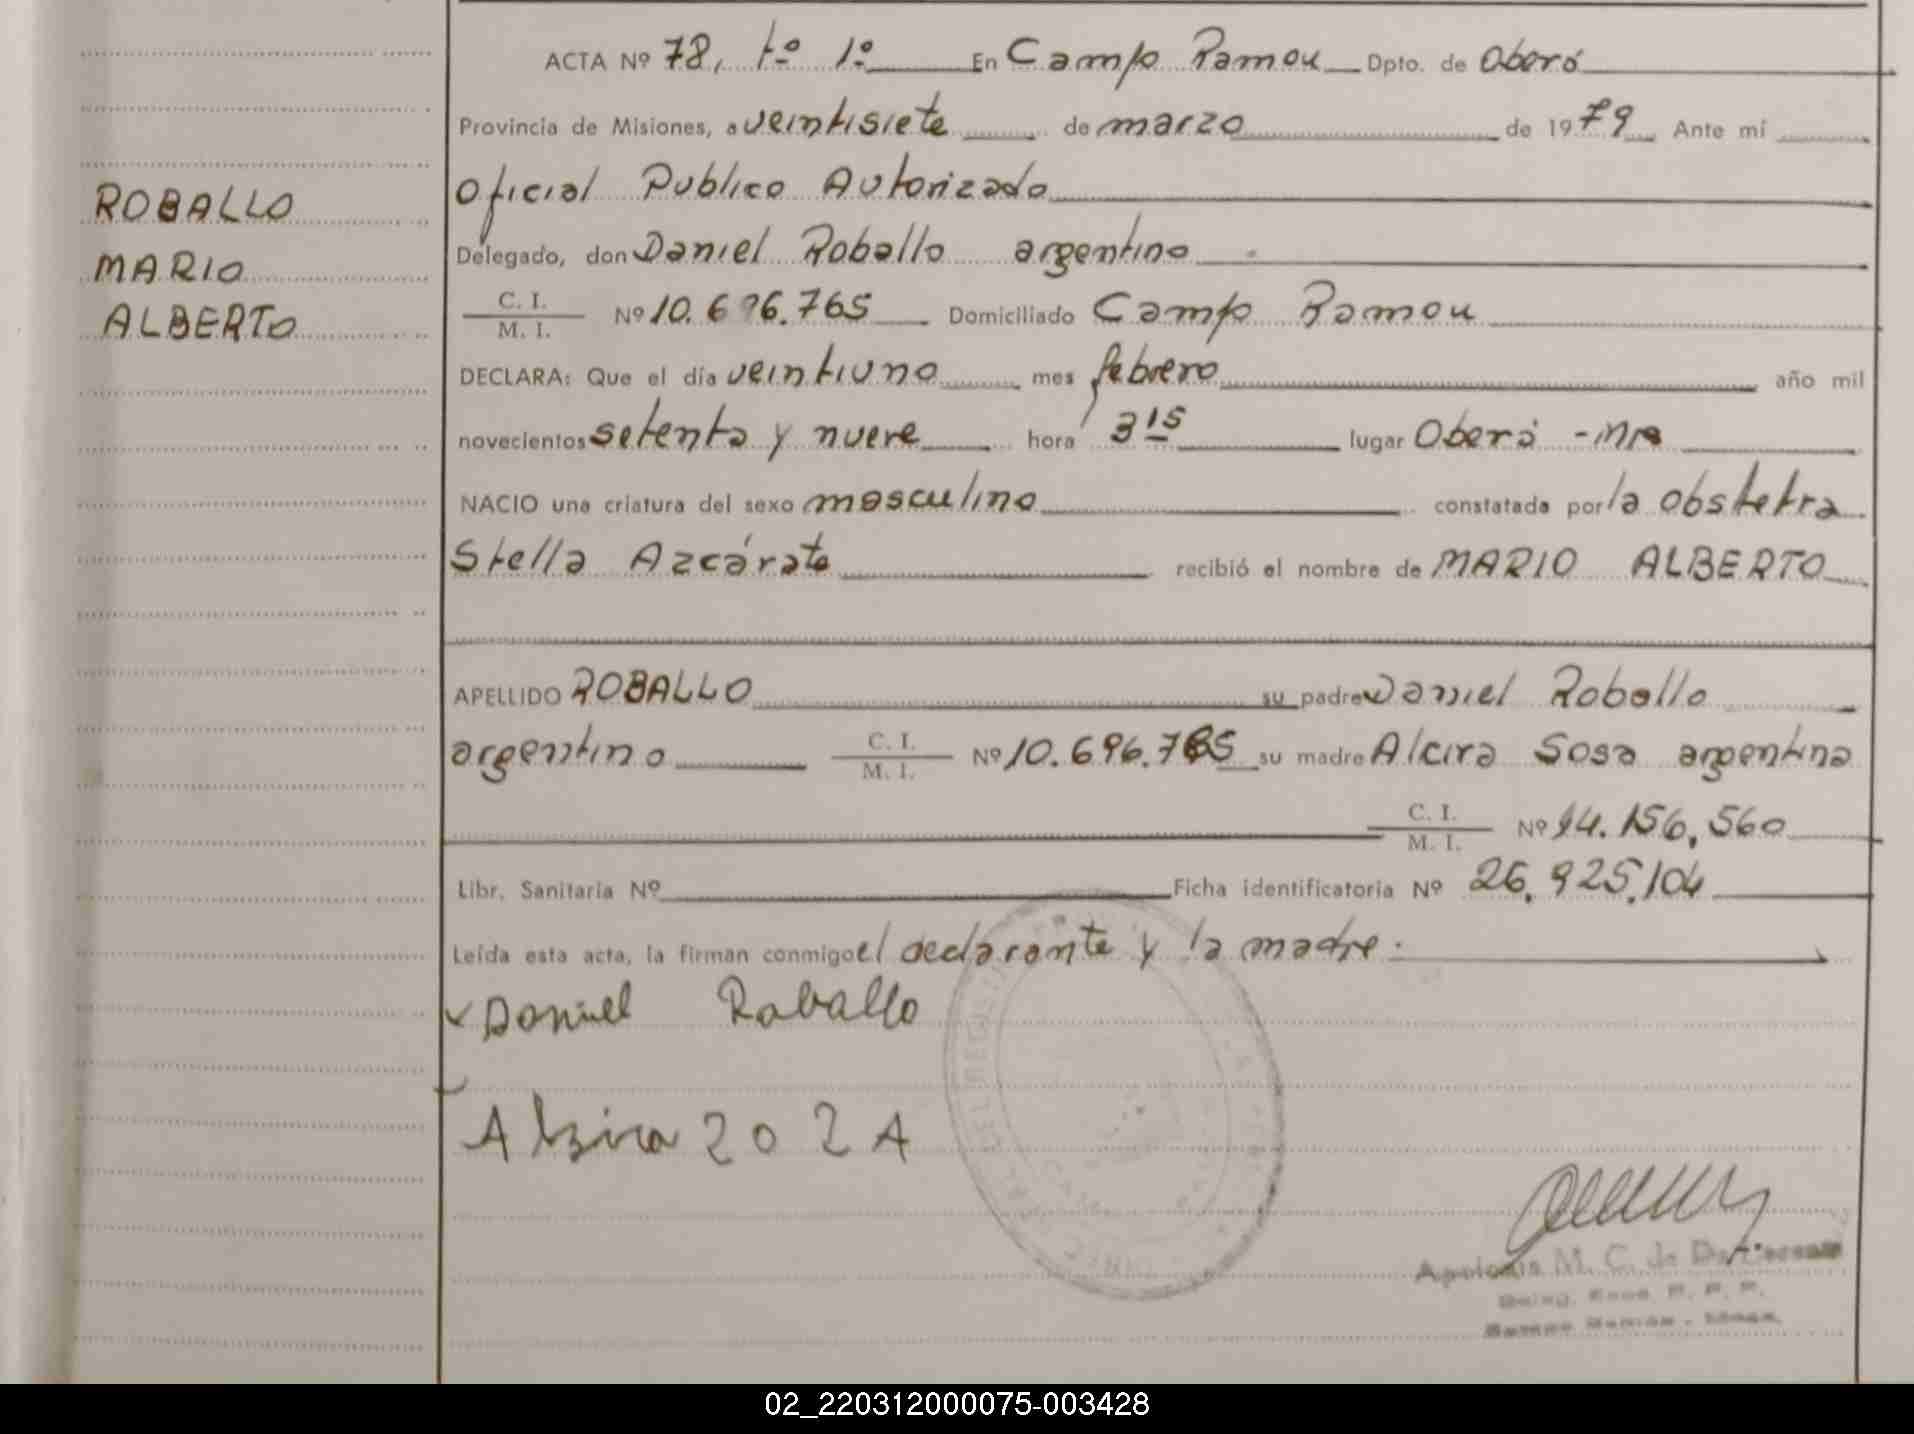 ACTA Nº 78, tº 1º En Campo Ramou Dpto. de Oberá
Provincia de Misiones, a veintisiete de marzo de 1979 Ante mí
Oficial Publico Autorizado
ROBALLO
Delegado, don Daniel Roballo argentino
MARIO
C. I.
M. I. Nº 10.696.765 Domiciliado Campo Ramou
ALBERTO
DECLARA: Que el día veintiuno mes febrero año mil
novecientos setenta y nueve hora 3 15 lugar Oberá - Mns
NACIO una criatura del sexo masculino constatada por la obstetra
Stella Azcárate recibió el nombre de MARIO ALBERTO
APELLIDO ROBALLO su padre Daniel Roballo
argentino C. I. M. I. Nº 10.696.765 su madre Alcira Sosa argentina
C. I. M. I. Nº 14.156,560
Libr. Sanitaria Nº Ficha identificatoria Nº 26,925,104
Leída esta acta, la firman conmigo el declarante y la madre.
Daniel Roballo
Alzira 202A
02_220312000075-003428